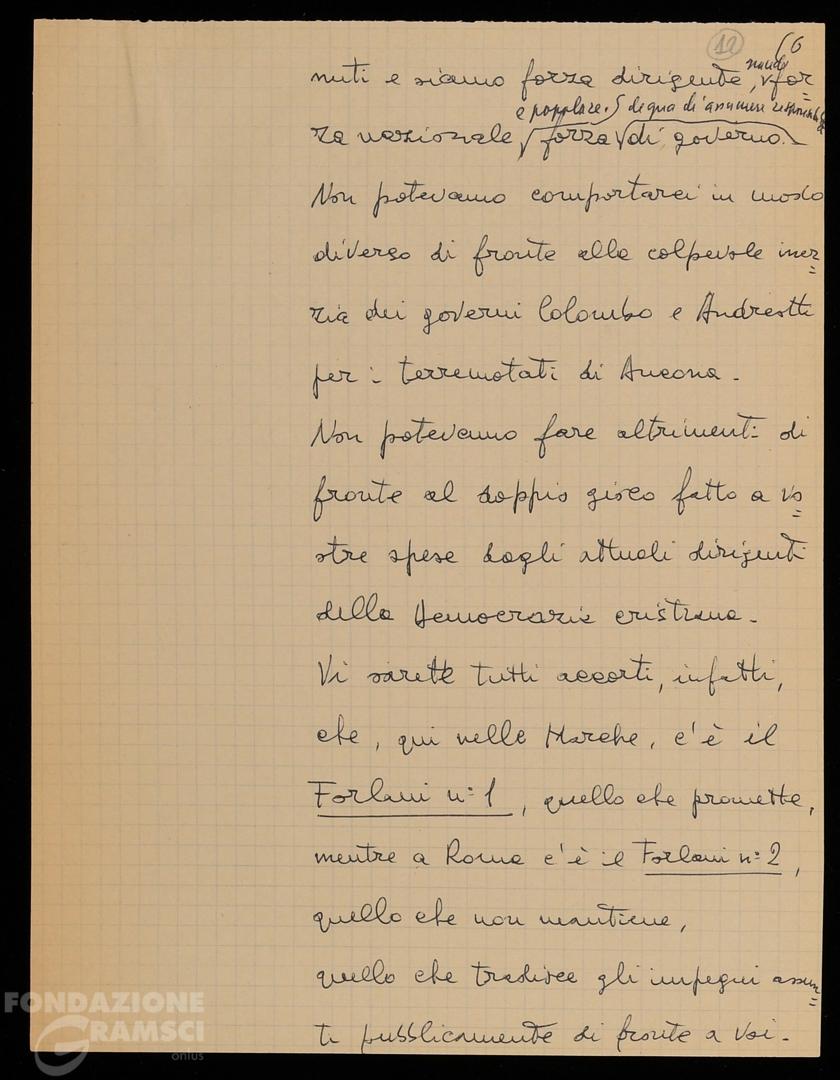 12
nuti e siamo forza dirigente, for=
e popolare. degna di assumere
za nazionale forza di governo.
Non potevamo comportarci in modo
diverso di fronte alla colpevole iner=
zia dei governi Colombo e Andreotti
per i terremotati di Ancona.
Non potevamo fare altrimenti di
fronte al doppio gioco fatto a vo=
stre spese dagli attuali dirigenti
della Democrazia cristiana.
Vi sarete tutti accorti, infatti,
che, qui nelle Marche, c'è il
Forlani n: 1, quello che promette,
mentre a Roma c'è il Forlani n: 2,
quello che non mantiene,
quello che tradisce gli impegni assun=
ti pubblicamente di fronte a voi.
FONDAZIONE
GRAMSCI
onlus